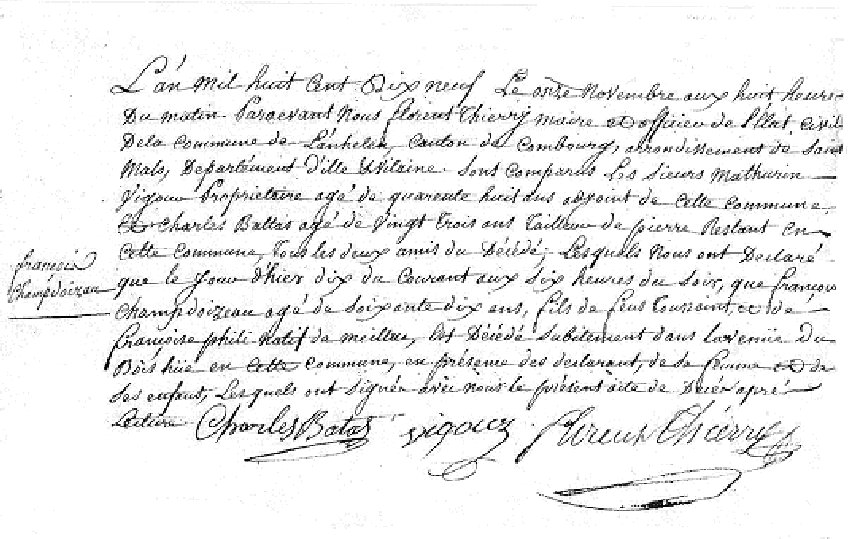 L'an mil huit cent dix neuf Le onze novembre aux huit heures
Du matin Pardevant Nous florent Thierry maire et officier de l'Etat Civil
De la commune de Lanhelen, canton de Combourg, arrondissement de Saint
Malo, Département d'ille & Vilaine. Sont comparus Les Sieurs Mathurin
Vigour Proprietaire agé de quarante huit ans adjoint de cette commune
et Charles Battas agé de vingt trois ans Tailleur de pierre Restant en
cette Commune, Tous les deux amis du Décédé, Lesquels Nous ont Declaré
que le Jour d'hier dix du Courant aux six heures du Soir, que françois
Champdoizeau agé de soixante dix ans, fils de feus Toussaint, et de
françoise natif de meillac, Est Décédé Subitement dans lavenüe Du
Bois hüe en cette Commune, en présence des declarant, de sa femme et de
ses enfant, Lesquels ont signée avec nous le présent acte de Décès aprés
Lecture
françois
Champdoizeau
Charles Batas vigour florent Thierry